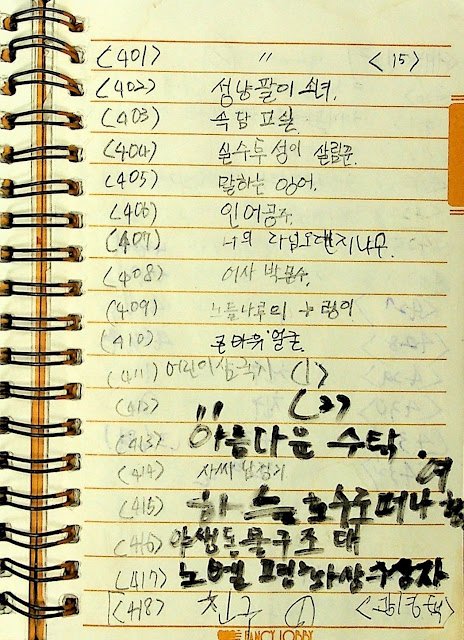 <401> 〃 <15>
<402> 성냥팔이 소녀.
<403> 속담 교실.
<404> 실수투성이 살림꾼.
<405> 말하는 잉어.
<406> 인어공주.
<407> 나의 라임오렌지나무.
<408> 어사 박문수.
<409> 노들나루의
<410> 큰바위 얼굴.
<411> 어린이삼국지 <1>
<412> 〃 <2>
<413> 아름다운 수탉.
<414> 사씨남정기
<415> 하늘 호수로 떠나
여
<416> 야생동물구조대
<417> 노벨 평화상 수상자
<418> 친구 ①
FANCY LOBBY